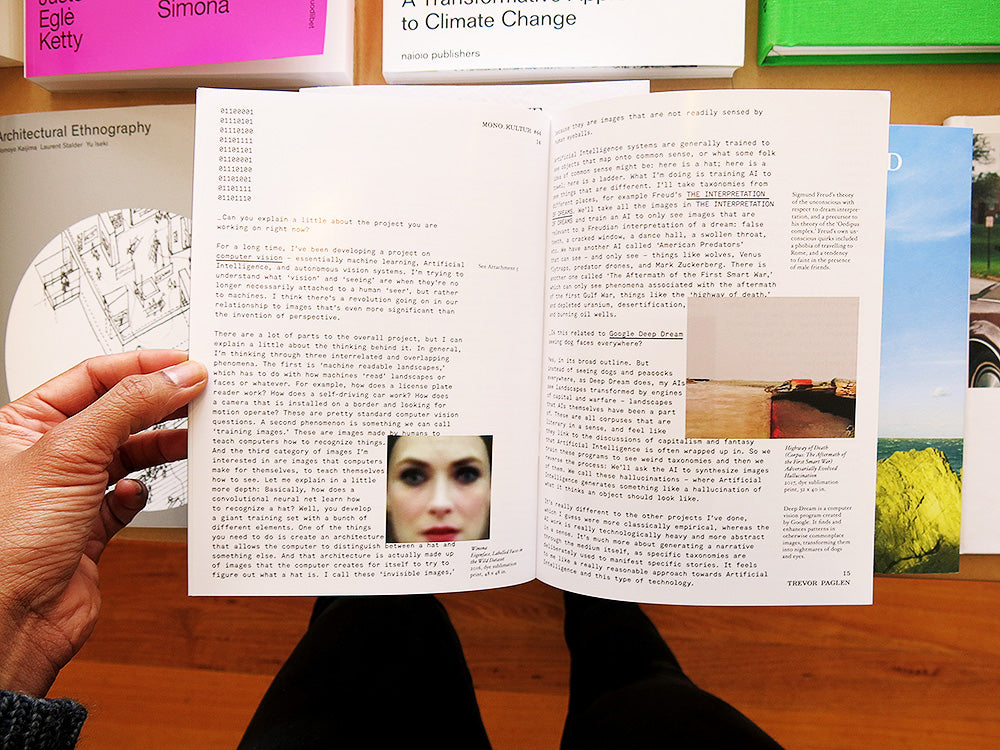 Juste
Eglė
Ketty
Simona
A Transformative
to Climate Change
nai010 publishers
Architectural Ethnography
Momoyo Kaijima Laurent Stalder Yu Iseki
01100001
01110101
01110100
01101111
01101101
01100001
01110100
01101001
01101111
01101110
MONO.KULTUR #44
14
_Can you explain a little about the project you are
working on right now?
For a long time, I've been developing a project on
computer vision – essentially machine learning, Artificial
Intelligence, and autonomous vision systems. I'm trying to
understand what 'vision' and 'seeing' are when they're no
longer necessarily attached to a human 'seer', but rather
to machines. I think there's a revolution going on in our
relationship to images that's even more significant than
the invention of perspective.
See Attachment 1
There are a lot of parts to the overall project, but I can
explain a little about the thinking behind it. In general,
I'm thinking through three interrelated and overlapping
phenomena. The first is 'machine readable landscapes,'
which has to do with how machines 'read' landscapes or
faces or whatever. For example, how does a license plate
reader work? How does a self-driving car work? How does
a camera that is installed on a border and looking for
motion operate? These are pretty standard computer vision
questions. A second phenomenon is something we can call
'training images.' These are images made by humans to
teach computers how to recognize things.
And the third category of images I'm
interested in are images that computers
make for themselves, to teach themselves
how to see. Let me explain in a little
more depth: Basically, how does a
convolutional neural net learn how
to recognize a hat? Well, you develop
a giant training set with a bunch of
different elements. One of the things
you need to do is create an architecture
that allows the computer to distinguish between a hat and
something else. And that architecture is actually made up
of images that the computer creates for itself to try to
figure out what a hat is. I call these 'invisible images,'
Winona
Eigenface, Labelled Faces in
the Wild Dataset
2016, dye sublimation
print, 48 x 48 in.
because they are images that are not readily sensed by
human eyeballs.
Artificial Intelligence systems are generally trained to
see objects that map onto common sense, or what some folk
idea of common sense might be: here is a hat; here is a
towel; here is a ladder. What I'm doing is training AI to
see things that are different. I'll take taxonomies from
different places, for example Freud's THE INTERPRETATION
OF DREAMS. We'll take all the images in THE INTERPRETATION
OF DREAMS and train an AI to only see images that are
relevant to a Freudian interpretation of a dream: false
teeth, a cracked window, a dance hall, a swollen throat,
so we have another AI called 'American Predators'
that can see – and only see – things like wolves, Venus
flytraps, predator drones, and Mark Zuckerberg. There is
another one called 'The Aftermath of the First Smart War,'
which can only see phenomena associated with the aftermath
of the first Gulf War, things like the 'highway of death,'
and depleted uranium, desertification,
and burning oil wells.
Sigmund Freud's theory
of the unconscious with
respect to dream interpre-
tation, and a precursor to
his theory of the 'Oedipus
complex.' Freud's own un-
conscious quirks included
a phobia of travelling to
Rome, and a tendency
to faint in the presence
of male friends.
_Is this related to Google Deep Dream
seeing dog faces everywhere?
Yes, in its broad outline. But
instead of seeing dogs and peacocks
everywhere, as Deep Dream does, my AIs
see landscapes transformed by engines
of capital and warfare – landscapes
that AIs themselves have been a part
of. These are all corpuses that are
literary in a sense, and feel like
they link to the discussions of capitalism and fantasy
that Artificial Intelligence is often wrapped up in. So we
train these programs to see weird taxonomies and then we
reverse the process: We'll ask the AI to synthesize images
of them. We call these hallucinations – where Artificial
Intelligence generates something like a hallucination of
what it thinks an object should look like.
Highway of Death
(Corpus: The Aftermath of
the First Smart War)
Adversarially Evolved
Hallucination
2017, dye sublimation
print, 32 x 40 in.
Deep Dream is a computer
vision program created
by Google. It finds and
enhances patterns in
otherwise commonplace
images, transforming them
into nightmares of dogs
and eyes.
It's really different to the other projects I've done,
which I guess were more classically empirical, whereas the
AI work is really technologically heavy and more abstract
in a sense. It's much more about generating a narrative
through the medium itself, as specific taxonomies are
deliberately used to manifest specific stories. It feels
to me like a really reasonable approach towards Artificial
Intelligence and this type of technology.
15
TREVOR PAGLEN